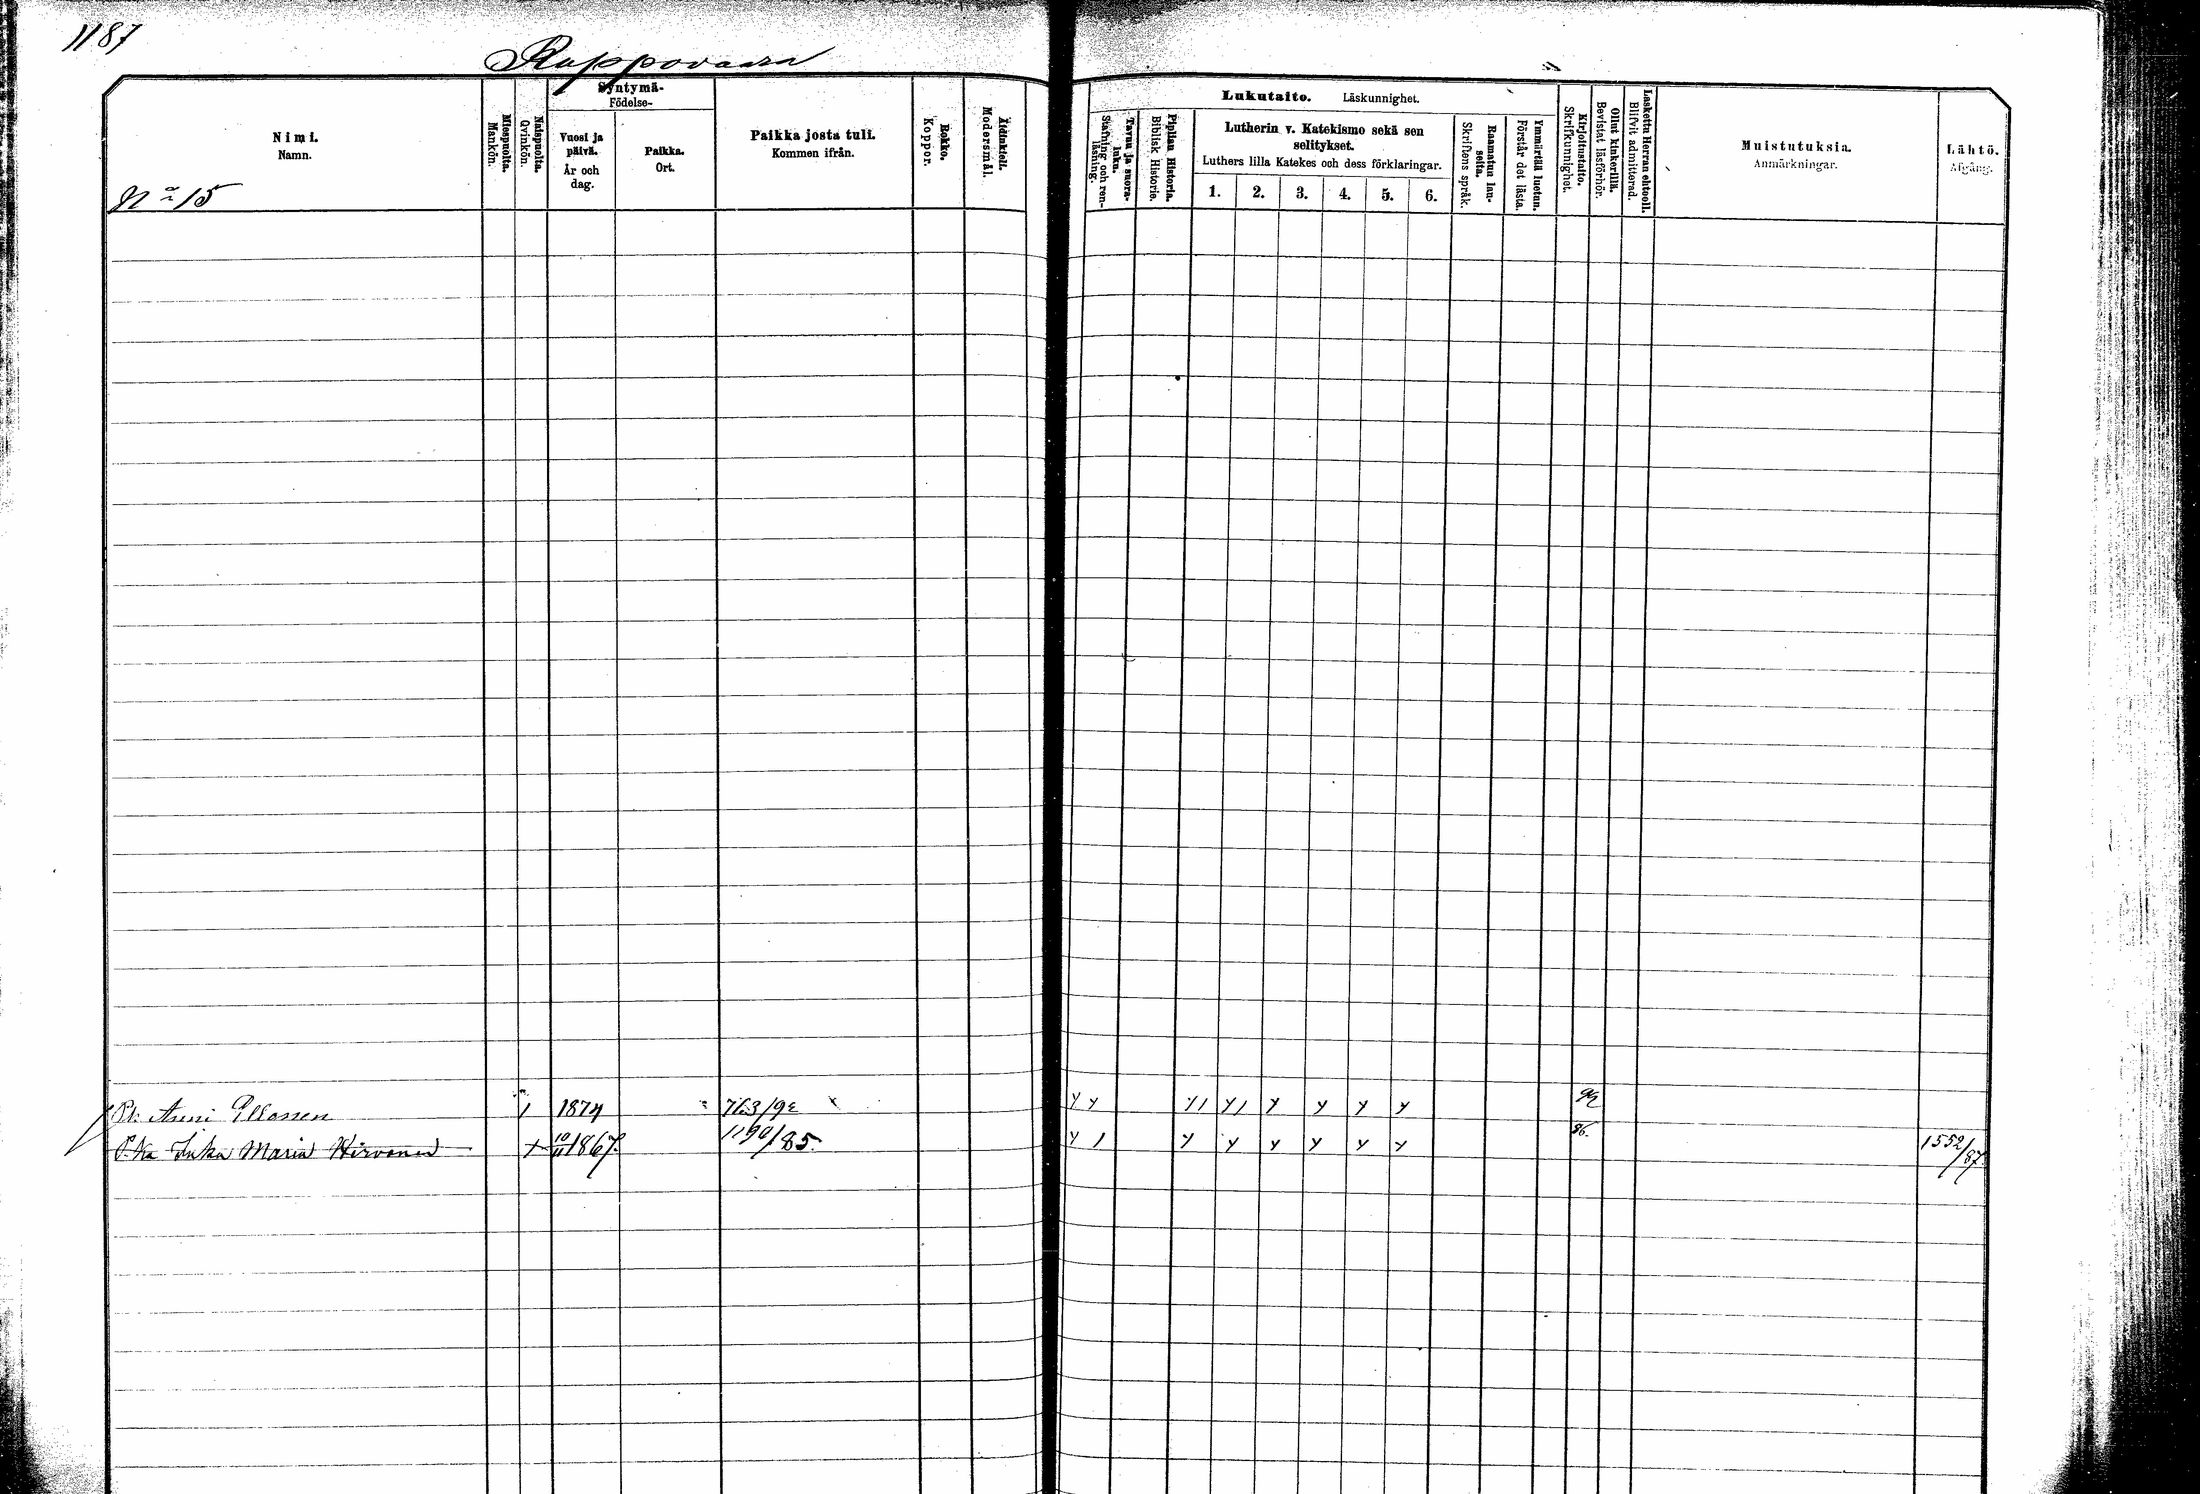 1187
Ruppovaara
Nimi.
Namn.
No 15
Miespuolta.
Mankön.
Naispuolta.
Qvinkön.
Syntymä-
Födelse-
Vuosi ja
päivä.
År och
dag.
Paikka.
Ort.
Paikka josta tuli.
Kommen ifrån.
Rokko.
Koppor.
Äidinkieli.
Modersmål.
Lukutaito. Läskunnighet.
Tavuu ja suora-
luku.
Stafning och ren-
läsning.
Piplian Historia.
Biblisk Historie.
Lutherin v. Katekismo sekä sen
selitykset.
Luthers lilla Katekes och dess förklaringar.
1. 2. 3. 4. 5. 6.
Raamatun lau-
seita.
Skriftens språk.
Ymmärtää luetun.
Förstår det lästa.
Kirjoitustaito.
Skrifkunnighet.
Ollut kinkerillä.
Bevistat läsförhör.
Laskettu Herran ehtooll.
Blifvit admitterad.
Muistutuksia.
Anmärkningar.
Lähtö.
Afgång.
Anni 1 1874 763/92
Maria Hirvonen 10/11 1867. 1190/85. 86. 1552/87